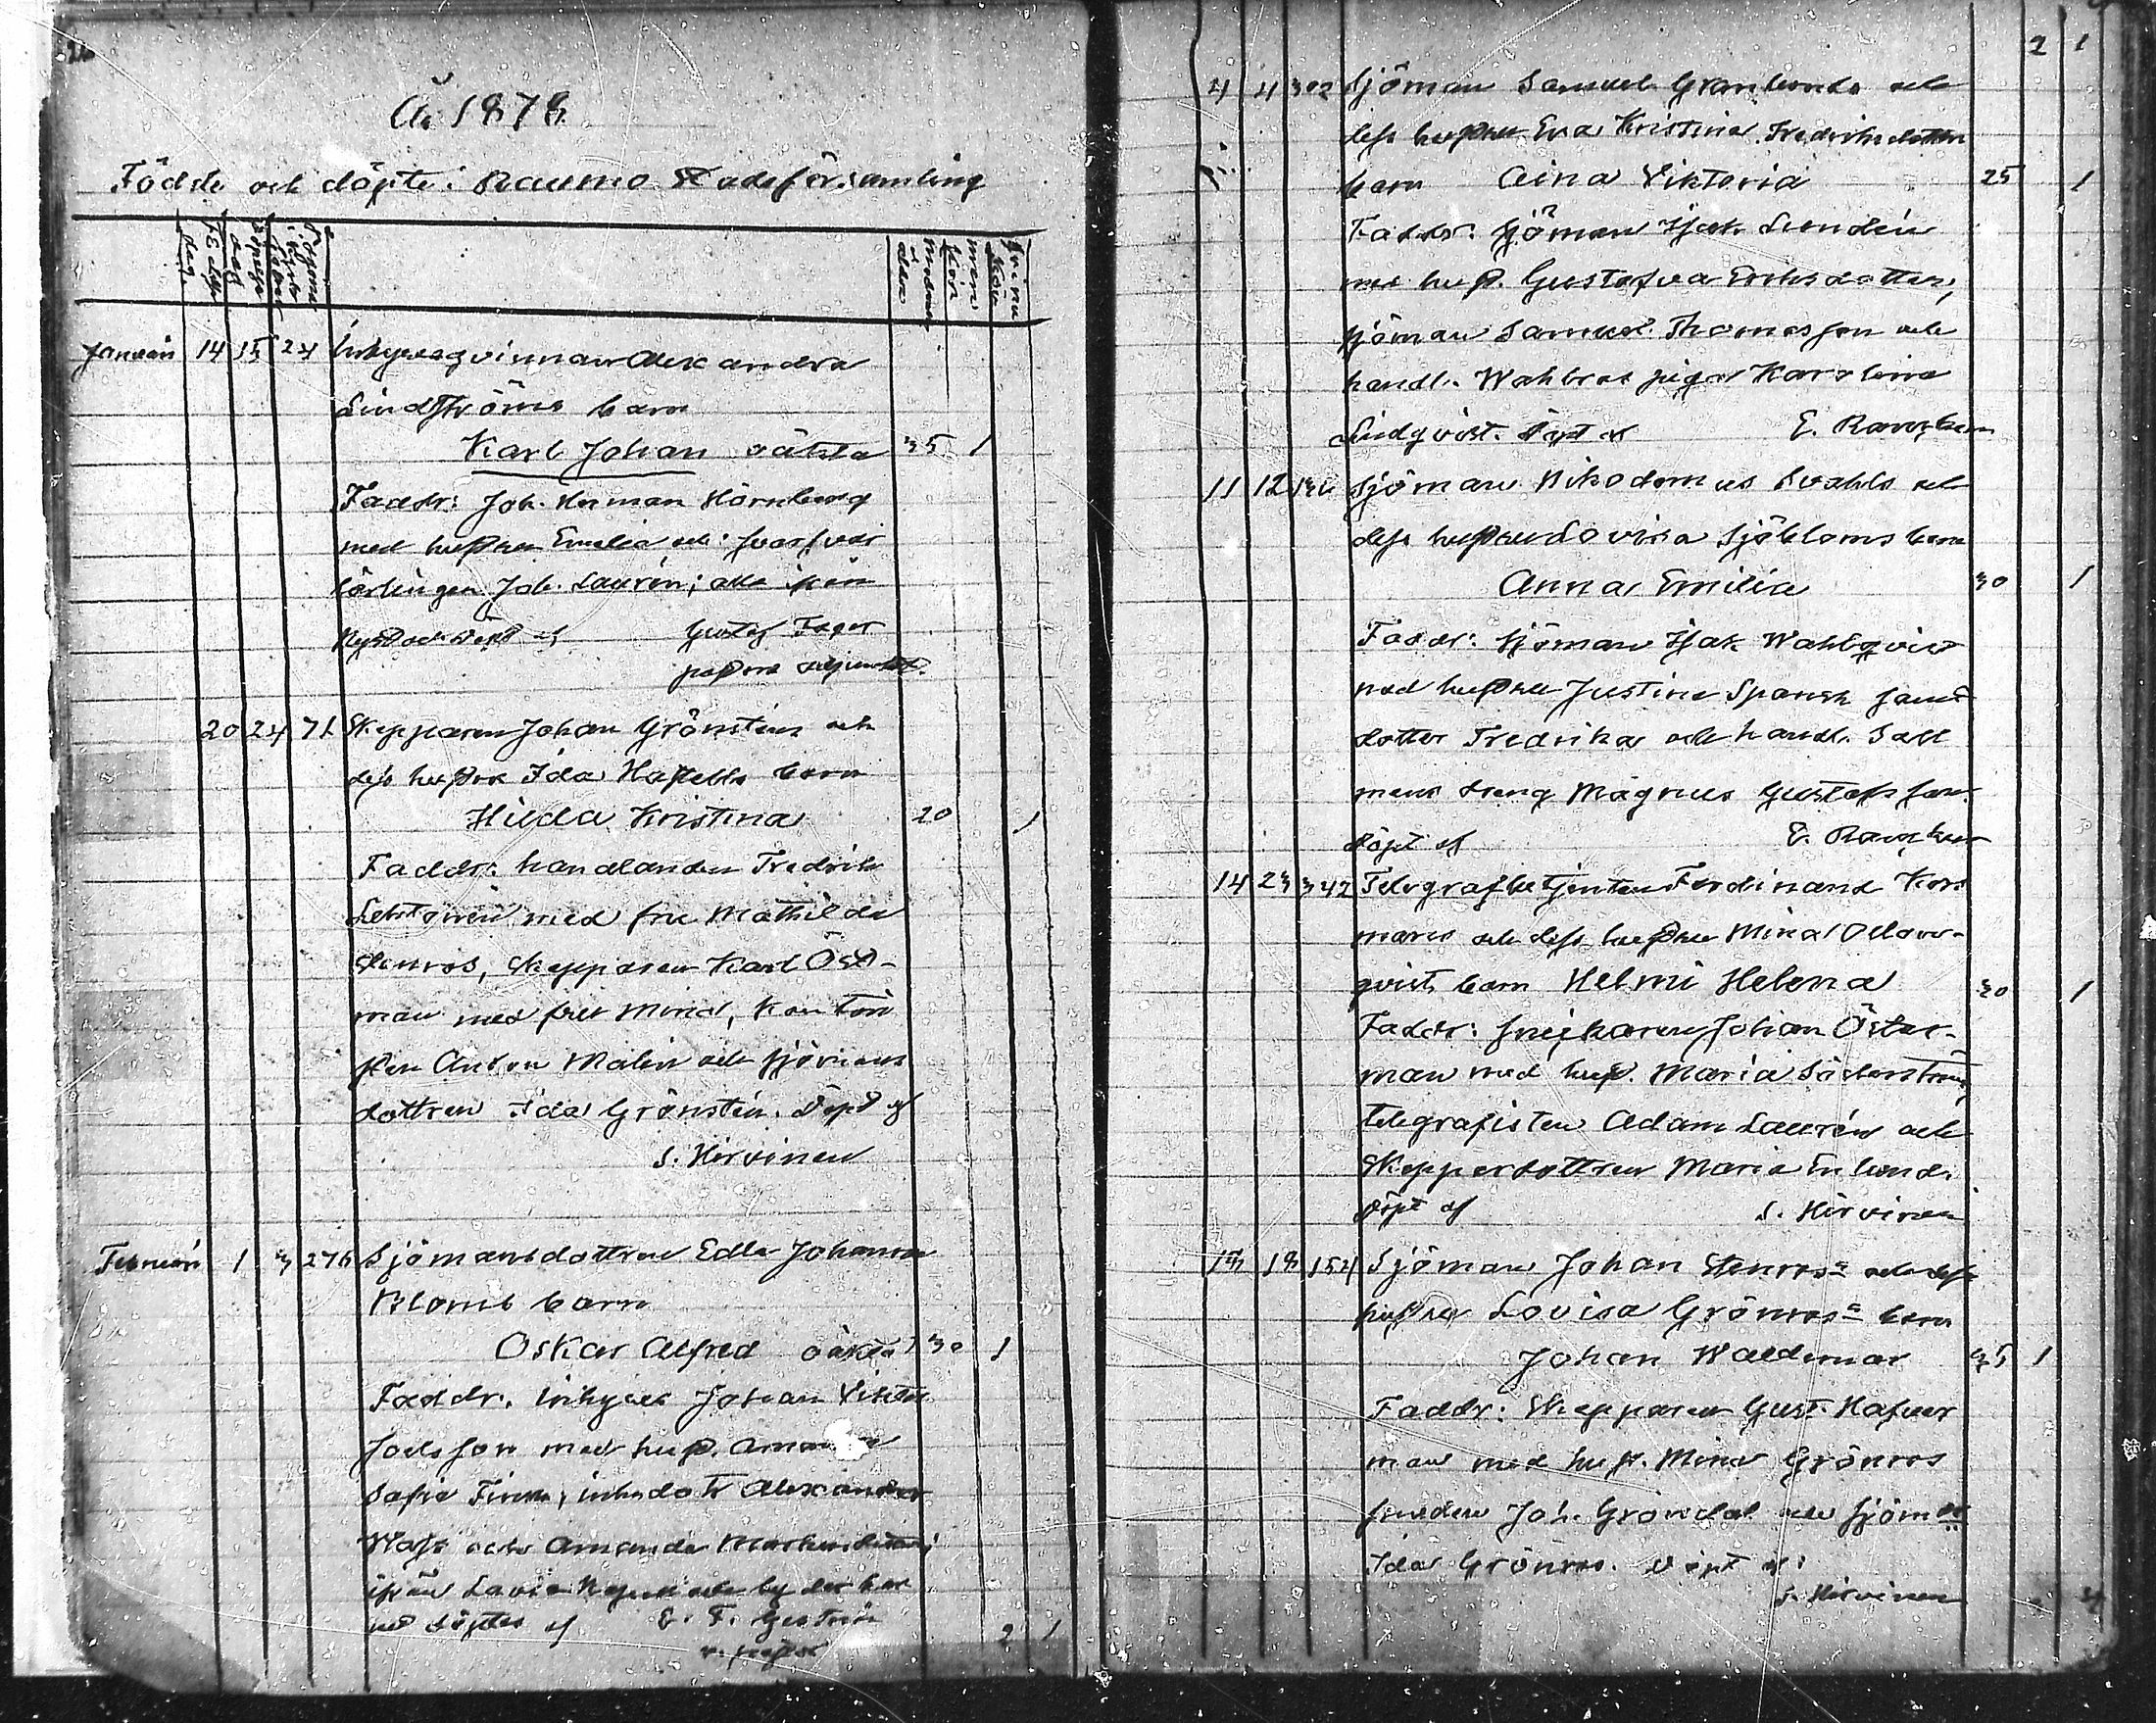 År 1878.
Födde och döpte i Raumo Stadsförsamling
Födelse dag
Döpelse dag
Moderns ålder
Mankön
Qvinnkön
Januari 14 15 24 Inhysesqvinnan Alexandra
Lindströms barn
Karl Johan oäkta 35 1
Faddr: Joh. Herman Hörnberg
med hustru Emilia och
lärlingen Joh. Laurén; alla ifrån
Nystad. Döpt af Gustaf Fager
pastors adjunkt.
20 24 71 Skepparen Johan Grönstens och
dess hustru Ida Hassells barn
Hilda Kristina 20 1
Faddr: handlanden Fredrik
med fru Mathilda
Stenros, skepparen Karl Öst-
man med fru Mina,
Anton Malin och sjömans
dottren Ida Grönsten. Döpt af
S. Hirvinen
Februari 1 3 276 Sjömansdottren Edla Johanna
Bloms barn
Oskar Alfred oäkta 30 1
Faddr. inhyses Johan Viktor
Joelsson med hust.
Sofia inhs dotr Alexandra
och Amanda
ifrån by der bar
net döptes af
v. pastor
2 1
2 1
4 4 302 Sjöman Samuel Granlunds och
dess hustru Eva Kristina Fredriksdotters
barn Aina Viktoria 25 1
Faddr: sjöman Isak Lundén
med hust. Gustafva Eriksdotter,
sjöman Samuel Thomasson och
handl. Wahlroos piga Karolina
Lindqvist. Döpt af E.
11 12 Sjöman Nikodemus Svahls och
dess hustru Lovisa Sjöbloms barn
Anna Emilia 30 1
Faddr: sjöman Isak Wahlqvist
med hustru Justina Spansk
dotter Fredrika och handl. Sall
mens dräng Magnus Gustafsson.
Döpt af E.
14 23 342 Telegrafbetjenten Ferdinand Kors
mans och dess hustru Mina
qvists barn Helmi Helena 30 1
Faddr: Johan Öster-
man med hust. Maria Söderström,
telegrafisten Adam Laurén och
Skepperdottren Maria Enlund.
Döpt af S. Hirvinen
15 18 154 Sjöman Johan Stenros' och dess
hustru Lovisa Grönros' barn
Johan Waldemar 35 1
Faddr: Skepparen Gust.
man med hust. Mina Grönros
Joh. Gröndal och
Ida Grönros. Döpt af
S. Hirvinen